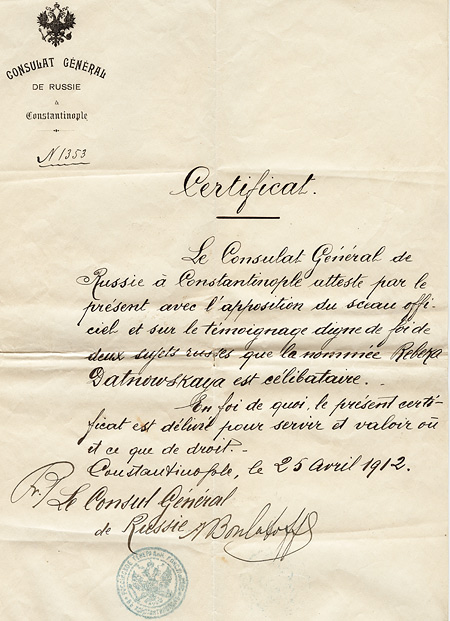 CONSULAT GÉNÉRAL
DE RUSSIE
à
Constantinople
N 1353
Certificat.
Le Consulat Général de
Russie à Constantinople atteste par le
présent avec l'apposition du sceau offi-
ciel et sur le témoignage digne de foi de
deux sujets russes que la nommée Rebeka
Datnowskaya est célibataire.
En foi de quoi, le présent certi-
ficat est délivré pour servir et valoir où
et ce que de droit.
Constantinople, le 25 Avril 1912.
Le Consul Général
de Russie